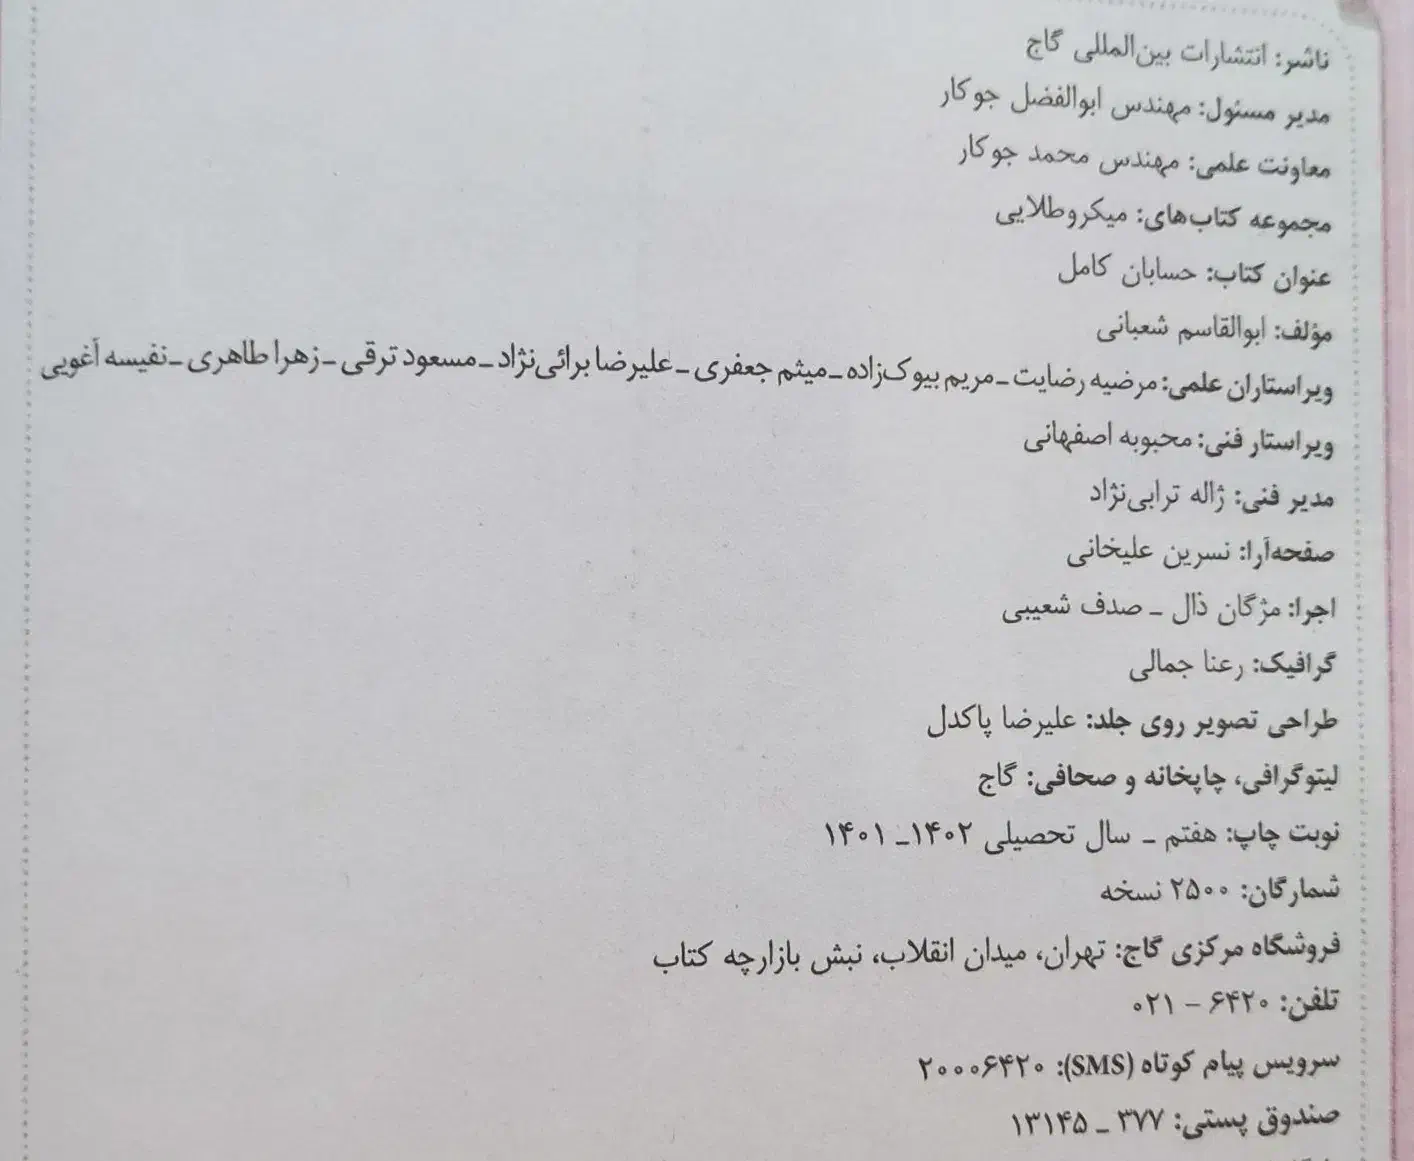 ناشر: انتشارات بین‌المللی گاج
مدیر مسئول: مهندس ابوالفضل جوکار
معاونت علمی: مهندس محمد جوکار
مجموعه کتاب‌های: میکروطلایی
عنوان کتاب: حسابان کامل
مؤلف: ابوالقاسم شعبانی
ویراستاران علمی: مرضیه رضایت ـ مریم بیوک‌زاده ـ میثم جعفری ـ علیرضا برائی‌نژاد ـ مسعود ترقی ـ زهرا طاهری ـ نفیسه آغویی
ویراستار فنی: محبوبه اصفهانی
مدیر فنی: ژاله ترابی‌نژاد
صفحه‌آرا: نسرین علیخانی
اجرا: مژگان ذال ـ صدف شعیبی
گرافیک: رعنا جمالی
طراحی تصویر روی جلد: علیرضا پاکدل
لیتوگرافی، چاپخانه و صحافی: گاج
نوبت چاپ: هفتم ـ سال تحصیلی ۱۴۰۲ـ ۱۴۰۱
شمارگان: ۲۵۰۰ نسخه
فروشگاه مرکزی گاج: تهران، میدان انقلاب، نبش بازارچه کتاب
تلفن: ۶۴۲۰ – ۰۲۱
سرویس پیام کوتاه (SMS): ۲۰۰۰۶۴۲۰
صندوق پستی: ۳۷۷ ـ ۱۳۱۴۵